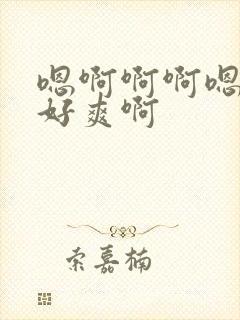 嗯啊啊啊嗯
好爽啊
索嘉楠